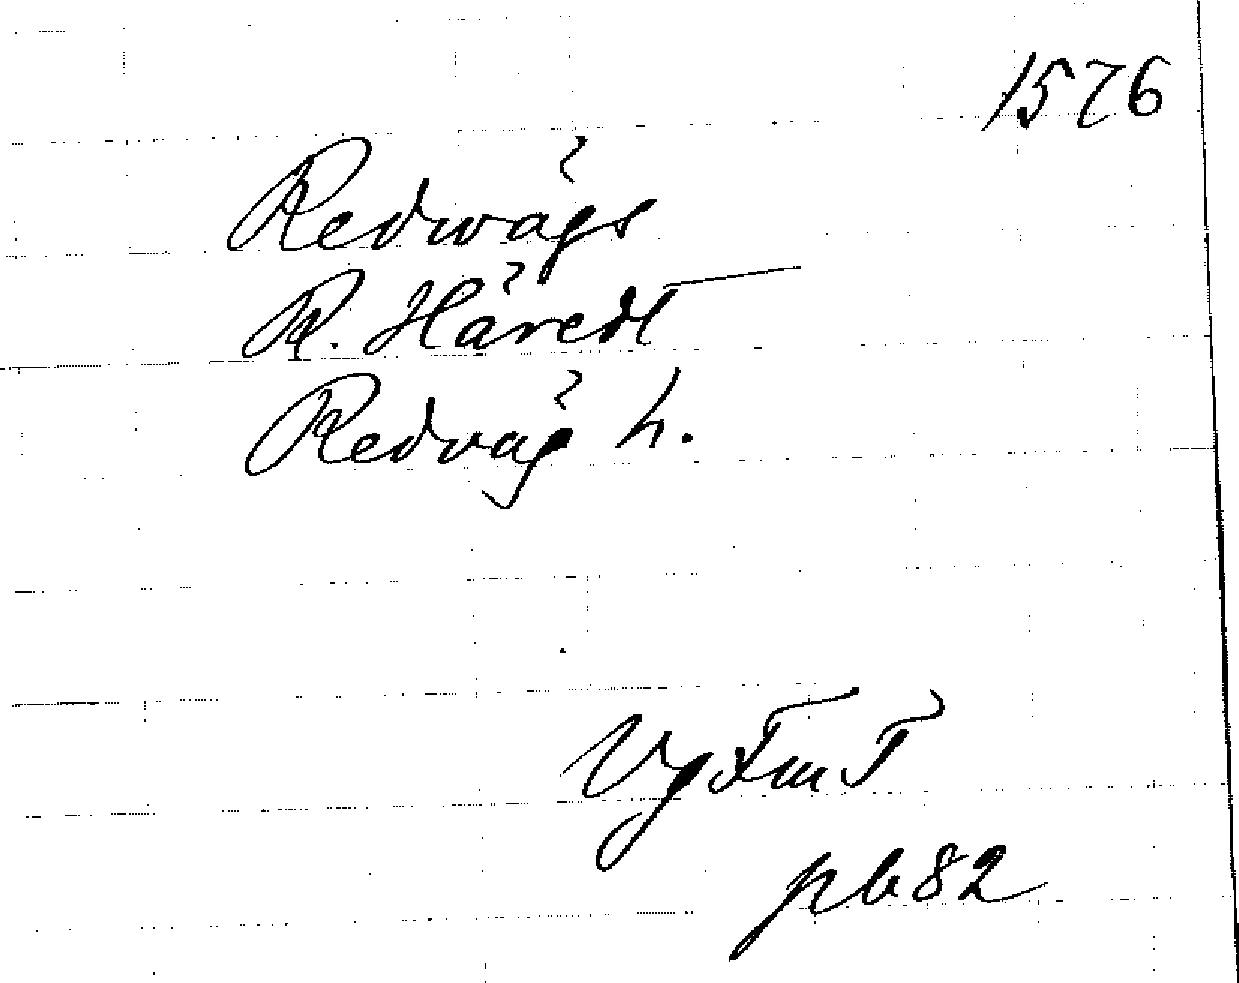 1576
Redwägs
R. Häredt
Redväg h.
Vg FmT
pb 82